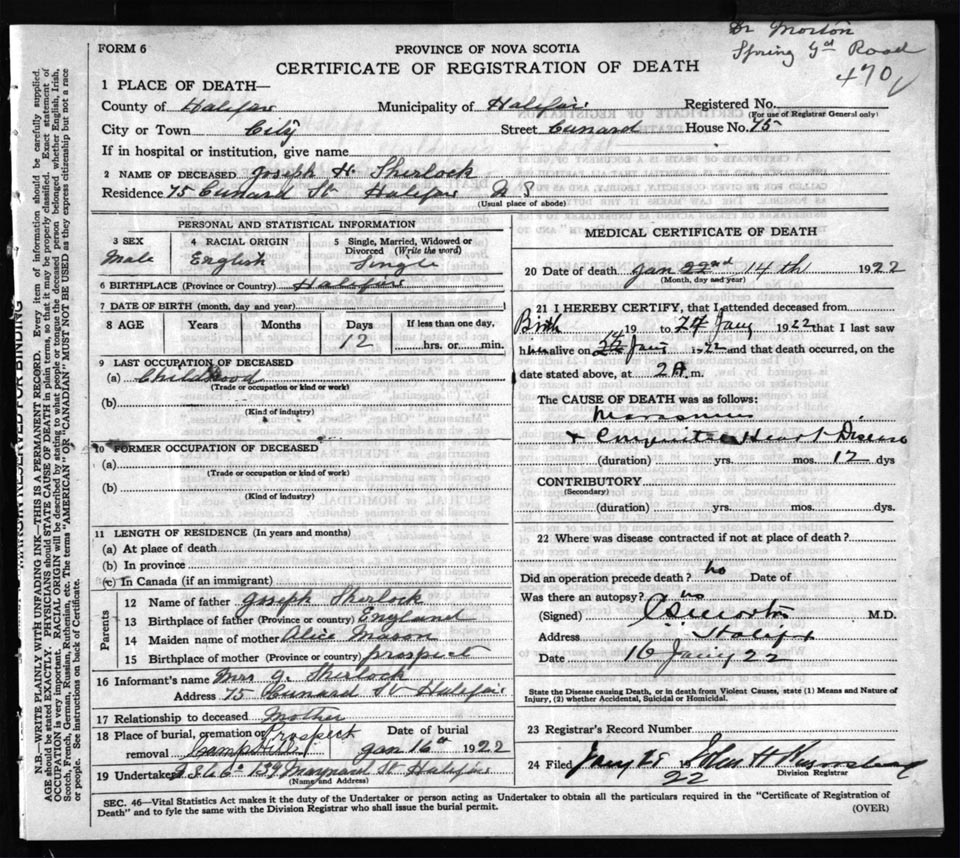 Dr Morton
Spring Gd Road
470
FORM 6
PROVINCE OF NOVA SCOTIA
CERTIFICATE OF REGISTRATION OF DEATH
1 PLACE OF DEATH—
County of Halifax Municipality of Halifax Registered No.
(For use of Registrar General only)
City or Town City Street Cunard House No. 75
If in hospital or institution, give name
2 NAME OF DECEASED Joseph H. Sherlock
Residence 75 Cunard St Halifax N S
(Usual place of abode)
PERSONAL AND STATISTICAL INFORMATION
3 SEX 4 RACIAL ORIGIN 5 Single, Married, Widowed or Divorced (Write the word)
Male English Single
6 BIRTHPLACE (Province or Country) Halifax
7 DATE OF BIRTH (month, day and year)
8 AGE Years Months Days If less than one day,
12 hrs. or min.
9 LAST OCCUPATION OF DECEASED
(a) Childhood
(Trade or occupation or kind or work)
(b)
(Kind of industry)
10 FORMER OCCUPATION OF DECEASED
(a)
(Trade or occupation or kind or work)
(b)
(Kind of industry)
11 LENGTH OF RESIDENCE (In years and months)
(a) At place of death
(b) In province
(c) In Canada (if an immigrant)
Parents
12 Name of father Joseph Sherlock
13 Birthplace of father (Province or country) England
14 Maiden name of mother Alice Mason
15 Birthplace of mother (Province or country) prospect
16 Informant's name Mrs J. Sherlock
Address 75 Cunard St Halifax
17 Relationship to deceased Mother
18 Place of burial, cremation or removal Prospect Date of burial
Jan 16th 1922
19 Undertaker 139 Maynard St Halifax
(Name and Address)
MEDICAL CERTIFICATE OF DEATH
20 Date of death Jan 22nd 14th 1922
(Month, day and year)
21 I HEREBY CERTIFY, that I attended deceased from
Birth 19 to Jany 1922 that I last saw
him alive on Jany 1922 and that death occurred, on the
date stated above, at 2 A m.
The CAUSE OF DEATH was as follows:
Heart Disease
(duration) yrs. mos. 12 dys
CONTRIBUTORY
(Secondary)
(duration) yrs. mos. dys.
22 Where was disease contracted if not at place of death?
Did an operation precede death? no Date of
Was there an autopsy? no
(Signed) Morton M.D.
Address Halifax
Date 16 Jany 22
State the Disease causing Death, or in death from Violent Causes, state (1) Means and Nature of Injury, (2) whether Accidental, Suicidal or Homicidal.
23 Registrar's Record Number
24 Filed Jany 19 22
Division Registrar
SEC. 46—Vital Statistics Act makes it the duty of the Undertaker or person acting as Undertaker to obtain all the particulars required in the "Certificate of Registration of
Death" and to fyle the same with the Division Registrar who shall issue the burial permit.
(OVER)
MARGIN RESERVED FOR BINDING
N.B.—WRITE PLAINLY WITH UNFADING INK—THIS IS A PERMANENT RECORD. Every item of information should be carefully supplied.
AGE should be stated EXACTLY. PHYSICIANS should STATE CAUSE OF DEATH in plain terms, so that it may be properly classified. Exact statement of
OCCUPATION is very important. RACIAL ORIGIN will be described by stating to what people or tongue the deceased person belonged whether English, Irish,
Scotch, French, German, Russian, Ruthenian, etc. The terms "AMERICAN" OR "CANADIAN" MUST NOT BE USED as they express citizenship but not a race
or people. See instructions on back of Certificate.